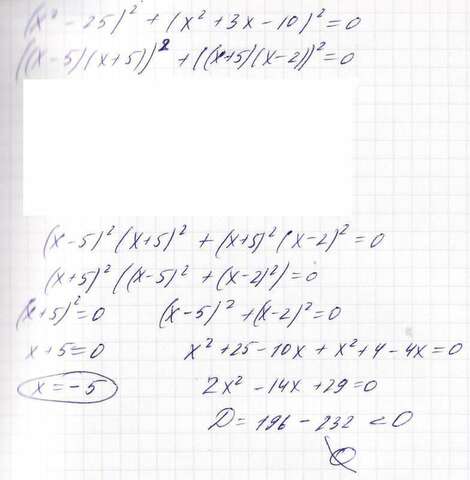 (x² - 25)² + (x² + 3x - 10)² = 0
((x-5)(x+5))² + ((x+5)(x-2))² = 0
(x-5)² (x+5)² + (x+5)² (x-2)² = 0
(x+5)² ((x-5)² + (x-2)²) = 0
(x+5)² = 0 (x-5)² + (x-2)² = 0
x+5=0 x² + 25 - 10x + x² + 4 - 4x = 0
x = -5 2x² - 14x + 29 = 0
D = 196 - 232 < 0
∅